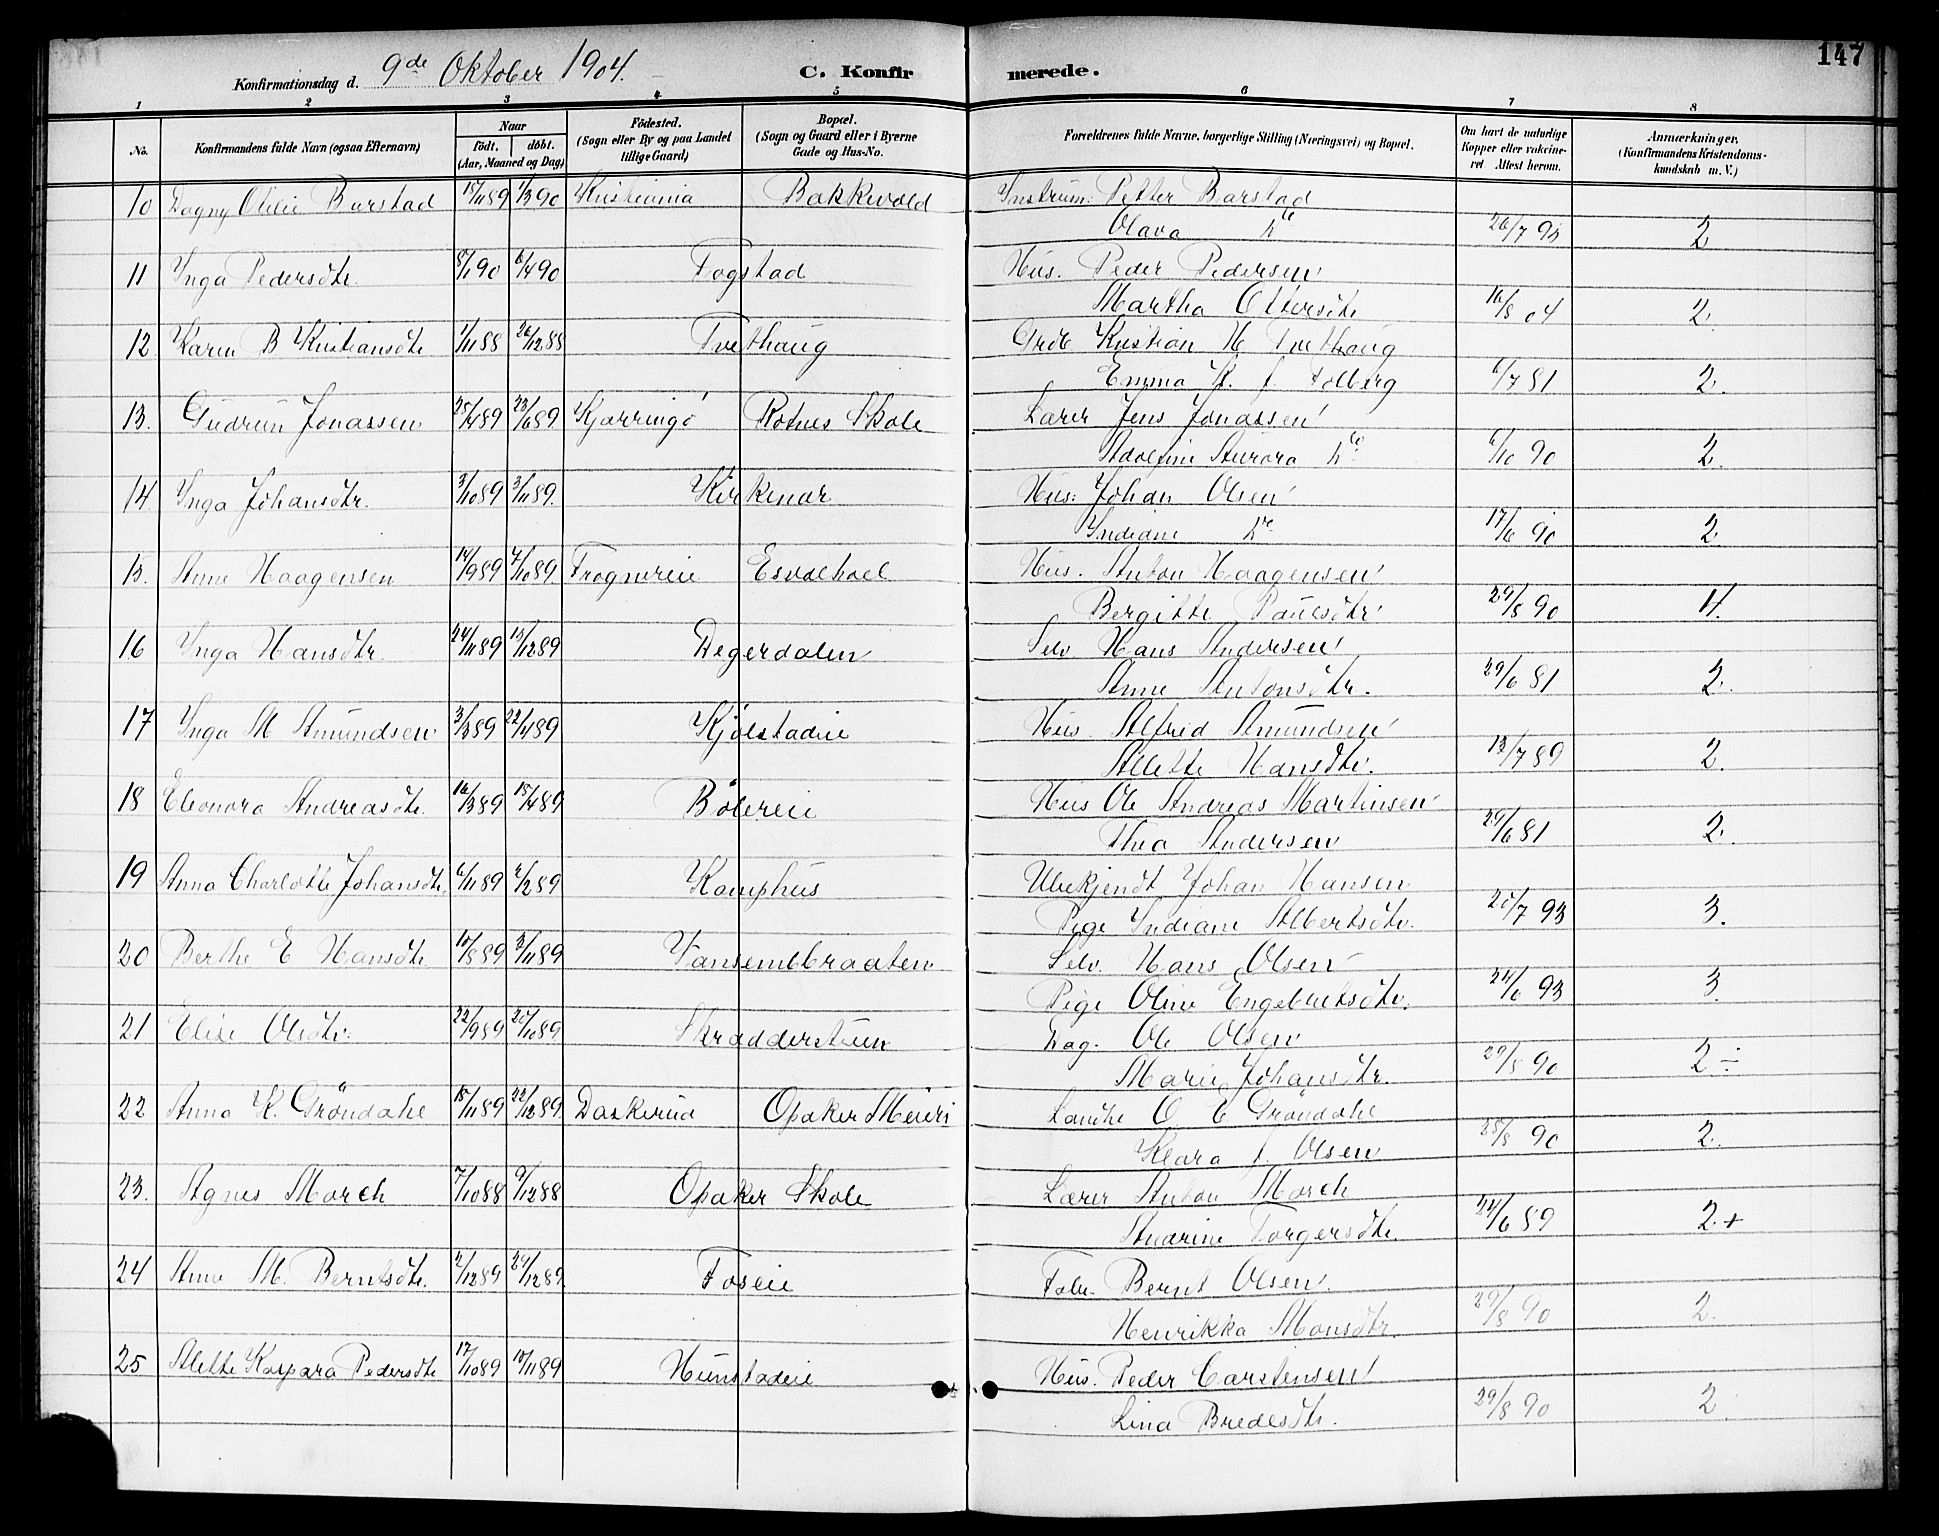 147
Konfirmationsdag d. 9de Oktober 1904.
C. Konfirmerede.
1 2 3 4 5 6 7 8
No.
Konfirmandens fulde Navn (ogsaa Efternavn)
Naar
födt. döbt.
(Aar, Maaned og Dag)
Födested.
(Sogn eller By og paa Landet
tillige Gaard)
Bopæl.
(Sogn og Gaard eller i Byerne
Gade og Hus-No.
Forældrenes fulde Navne, borgerlige Stilling (Næringsvei) og Bopæl.
Om havt de naturlige
Kopper eller vaccine-
ret Attest herom.
Anmærkninger.
(Konfirmandens Kristendoms-
kundskab m. V.)
10 Dagny Otilie Barstad 15/11 89 1/3 90 Kristiania Bakkevold Instrum. Petter Barstad
Olava do 26/7 93 2
11 Inga Pedersdtr. 8/1 90 6/4 90 Fogstad Hus. Peder Pedersen
Martha Ottersdtr 16/8 04 2.
12 Karen B Kristiansdtr 1/11 88 26/12 88 Tvethaug Grdb Kristian H Tvethaug
Emma K. f. Folberg 6/7 81 2.
13. Gudrun Jonassen 25/4 89 23/6 89 Kjærringö Rotnes Skole Lærer Jens Jonassen
Adolfine Aurora do 6/10 90 2.
14 Inga Johansdtr. 3/10 89 3/11 89. Kirkenær Hus: Johan Olsen
Indiane do 17/6 90 2
15. Anne Haagensen 14/9 89 4/10 89 Frognereie Esvalhoel Hus. Anton Haagensen
Bergitte Paulsdtr 29/8 90 4.
16 Inga Hansdtr 24/11 89 15/12 89 Degerdalen Selv. Hans Andersen
Anne Antonsdtr. 29/6 81 2.
17 Inga M Amundsen 3/3 89 22/4 89 Kjölstadeie Hus Alfred Amundsen
Alette Hansdtr. 13/7 89 2.
18 Eleonora Andreasdtr. 16/3 89 15/4 89 Bölereie Hus Ole Andreas Martinsen
Thea Andersen 29/6 81 2.
19 Anna Charlotte Johansdtr. 6/11 89 2/2 89 Kamphus Ubekjendt Johan Hansen
Pige Indiane Albertsdtr. 20/7 93 3.
20 Berthe E Hansdtr. 10/8 89 3/11 89 Vansembbraaten Selv. Hans Olsen
Pige Oline Engebretsdtr. 24/6 93 3.
21 Elise Olsdtr. 22/9 89 20/10 89 Skrædderstuen Dag. Ole Olsen
Marie Johansdtr. 29/8 90 2 ÷
22 Anna K. Gröndahl 15/11 89 22/12 89. Daskerud Opaker Meieri Landhl O. E Gröndahl
Klara f. Olsen 25/8 90 2.
23. Agnes Morch 7/10 88 9/12 88 Opaker Skole Lærer Anton Morch
Andrine Torgersdtr. 24/6 89 2 +
24 Anna M. Berntsdtr. 2/12 89 29/12 89. Foseie Fabr. Bernt Olsen
Henrikka Monsdtr. 29/8 90 2.
25 Alette Kaspara Pedersdtr 17/10 89 10/11 89 Hunstadeie Hus. Peder Carstensen
Lina Bredesdtr. 29/8 90 2